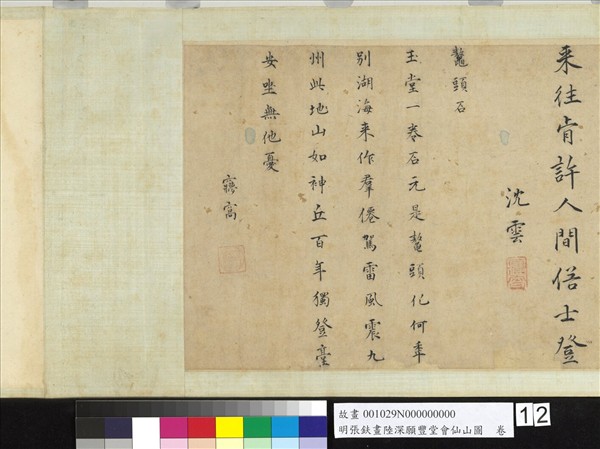 来往肯許人間俗士登
沈雲
鼇頭石
玉堂一卷石元是鼇頭化何年
別湖海来作羣僊駕雷風震九
州此地山如神丘百年獨登臺
安坐無他憂
窩
故畫 001029N000000000
明張鈇畫陸深願豐堂會仙山圖 卷
12